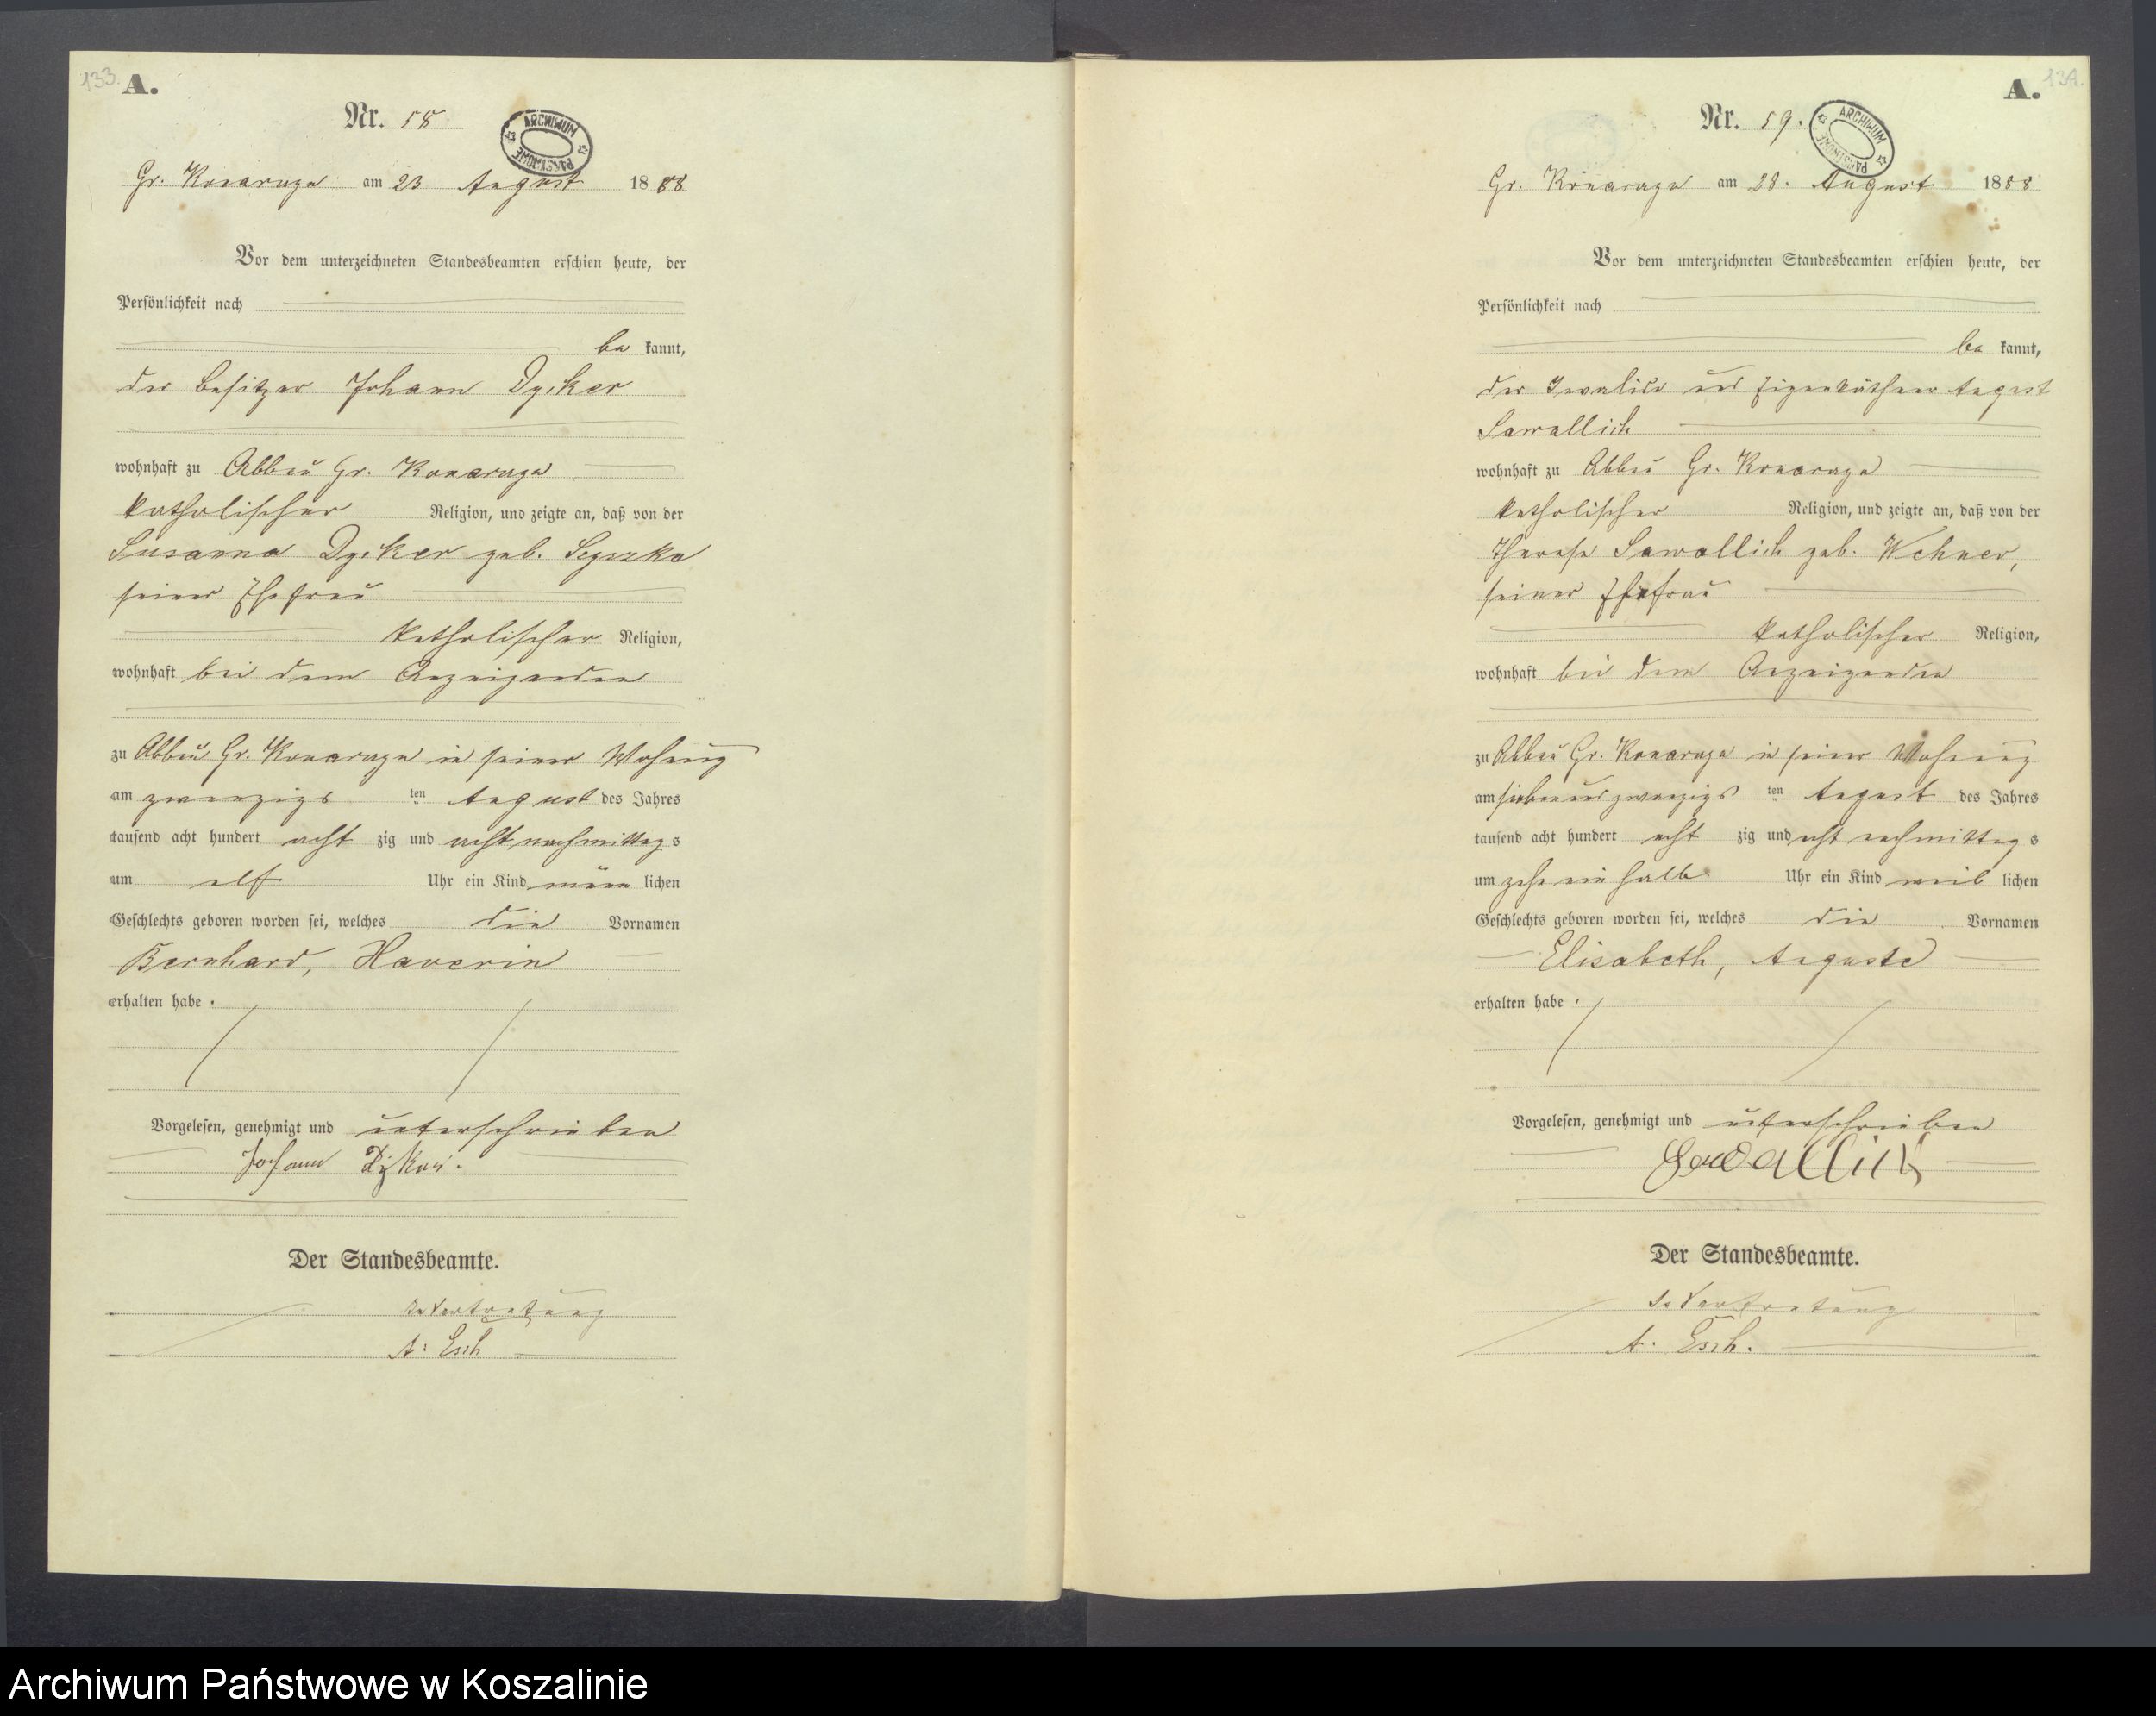 133.
A.
Nr. 58
ARCHIWUM PAŃSTWOWE
Gr. Konarzyn am 23 August 1888
Vor dem unterzeichneten Standesbeamten erschien heute, der
Persönlichkeit nach
be kannt,
der Besitzer Johann Dycker
wohnhaft zu Abbau Gr. Konarzyn
katholischer Religion, und zeigte an, daß von der
Susanna Dycker geb.
seiner Ehefrau
katholischer Religion,
wohnhaft bei dem Anzeigenden
zu Abbau Gr. Konarzyn in seiner Wohnung
am zwanzigs ten August des Jahres
tausend acht hundert acht zig und acht nachmittag s
um elf Uhr ein Kind männ lichen
Geschlechts geboren worden sei, welches die Vornamen
Bernhard,
erhalten habe.
Vorgelesen, genehmigt und unterschrieben
Johann
Der Standesbeamte.
In Vertretung
A. Esch
134.
A.
Nr. 59.
ARCHIWUM PAŃSTWOWE
Gr. Konarzyn am 28. August 1888
Vor dem unterzeichneten Standesbeamten erschien heute, der
Persönlichkeit nach
be kannt,
der Invalide und Eigenkäthner August
Sawallich
wohnhaft zu Abbau Gr. Konarzyn
katholischer Religion, und zeigte an, daß von der
Therese Sawallich geb. Wehner,
seiner Ehefrau
katholischer Religion,
wohnhaft bei dem Anzeigenden
zu Abbau Gr. Konarzyn in seiner Wohnung
am siebenundzwanzigs ten August des Jahres
tausend acht hundert acht zig und acht nachmittag s
um zehn ein halb Uhr ein Kind weib lichen
Geschlechts geboren worden sei, welches die Vornamen
Elisabeth, Auguste
erhalten habe.
Vorgelesen, genehmigt und unterschrieben
Sawallich
Der Standesbeamte.
In Vertretung
A. Esch.
Archiwum Państwowe w Koszalinie